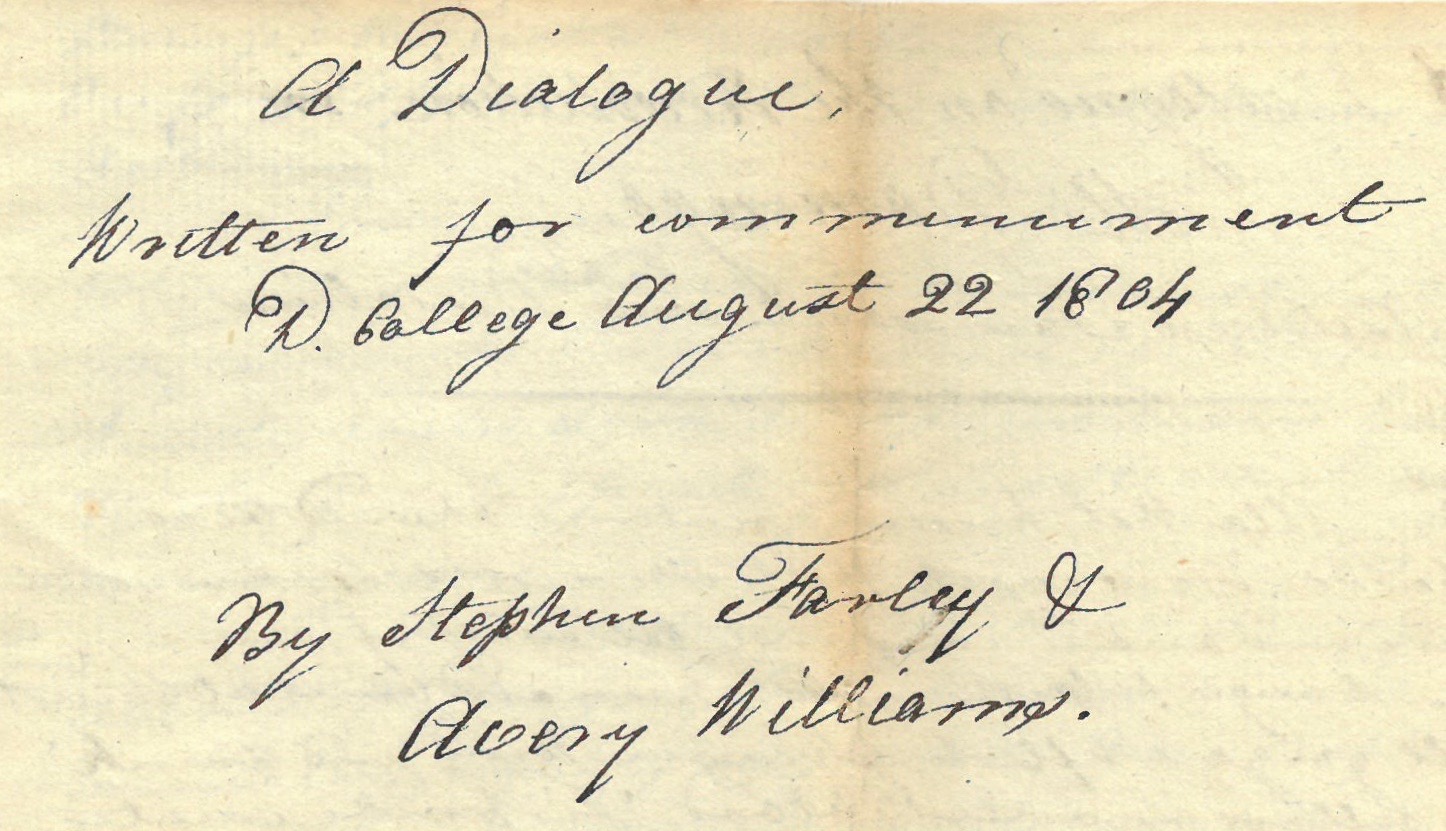 A Dialogue,
Written for commencement
D. College August 22 1804
By Stephen Farley &
Avery Williams.